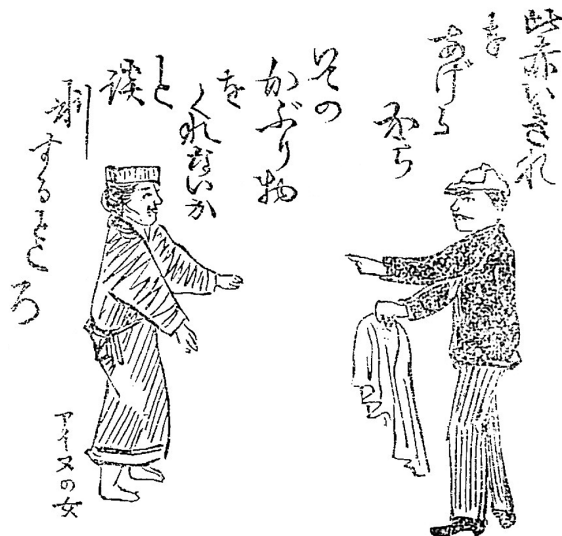 此赤いきれ
を
あげる
から
その
かぶり物
を
くれないか
と
談
判するところ
アイヌの女